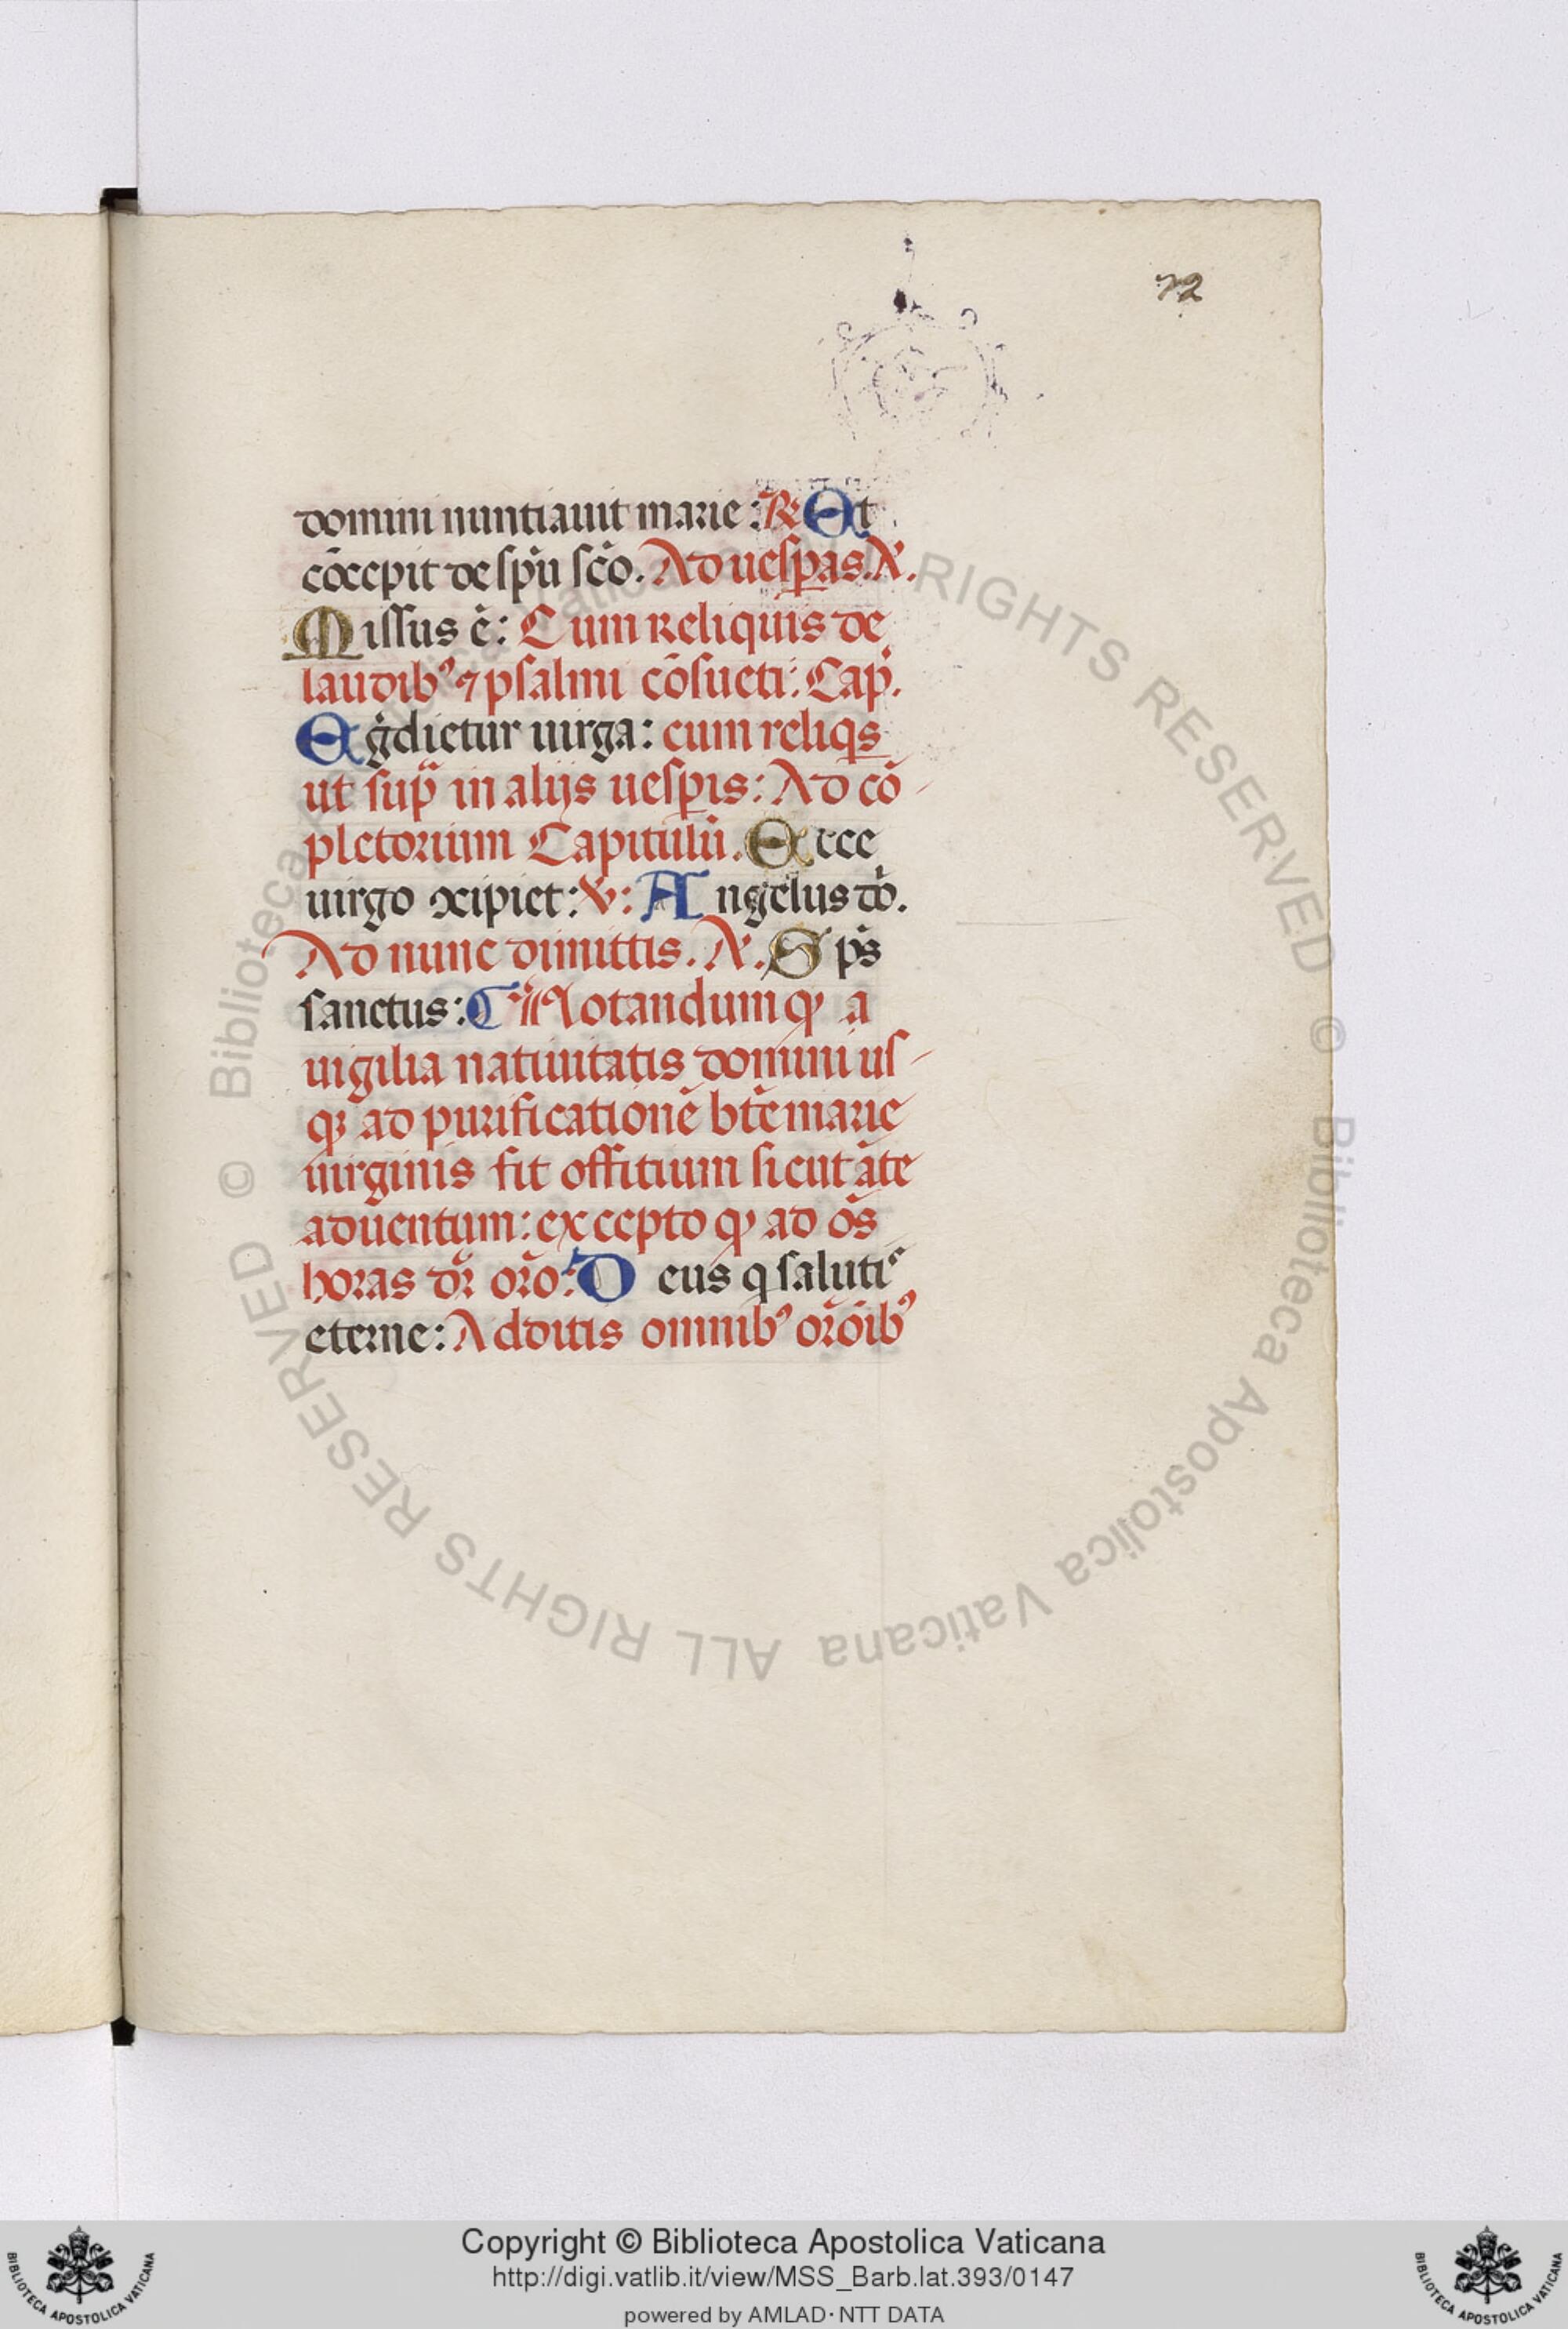 72
domini nuntiauit marie: ℟ Et
cōcepit de spū scō. Ad uesꝑas. A.
Missus ē: Cum reliquis de
laudibꝰ ⁊ psalmi cōsueti: Cap.
Egdietur uirga: cum reliqs
ut sup̄ in alijs uesꝑis: Ad cō
pletorium Capitulū. Ecce
uirgo ꝯcipiet: ℣: Angelus dō.
Ad nunc dimittis. A. Sp̄s
sanctus: Notandum ꝙ a
uigilia natiuitatis domini us-
qꝫ ad purificationē btē marie
uirginis fit offitium sicut āte
aduentum: excepto ꝙ ad ōs
horas dr̄ orō: Deus q salutis
eterne: Additis omnibꝰ orōibꝰ
© Biblioteca Apostolica Vaticana ALL RIGHTS RESERVED © Biblioteca Apostolica Vaticana ALL RIGHTS RESERVED
Copyright © Biblioteca Apostolica Vaticana
http://digi.vatlib.it/view/MSS_Barb.lat.393/0147
powered by AMLAD·NTT DATA
BIBLIOTECA APOSTOLICA VATICANA
BIBLIOTECA APOSTOLICA VATICANA